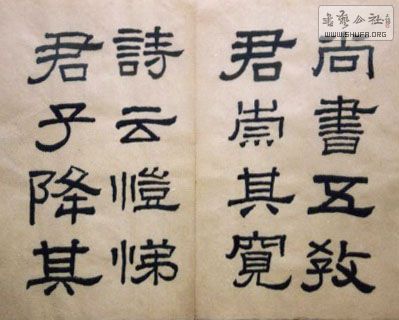 尚書五教
君崇其寛
詩云愷悌
君子降其
書藝公社
WWW.SHUFA.ORG